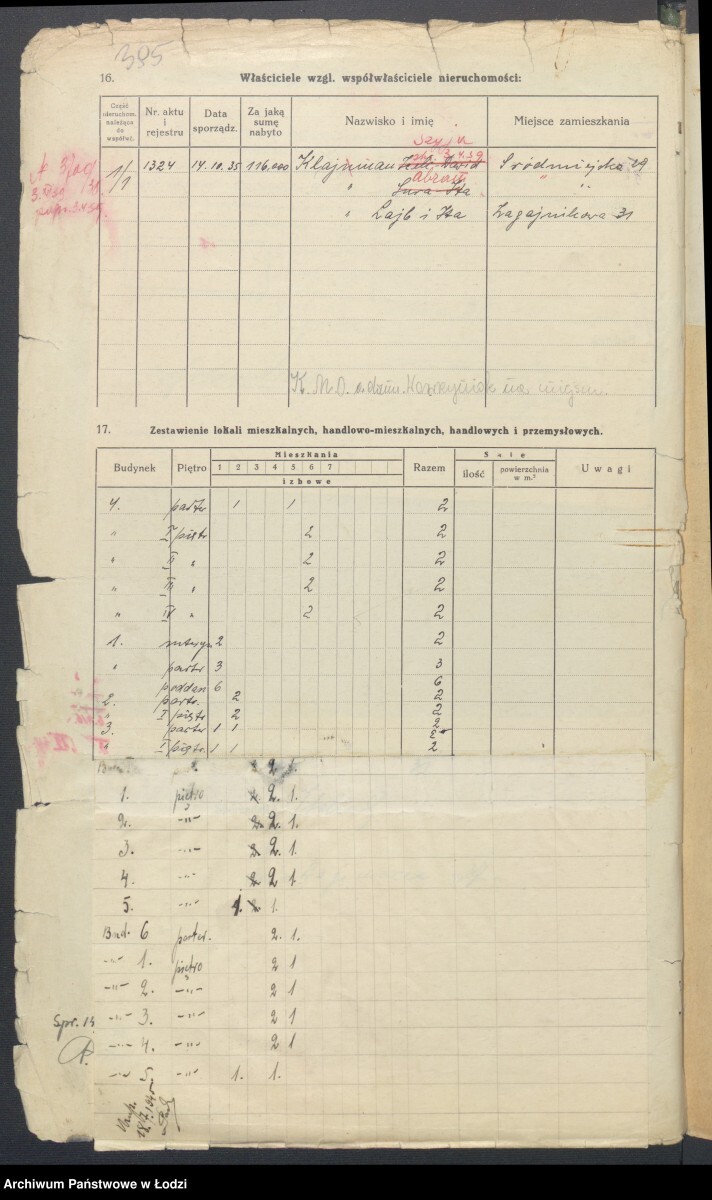 385
16. Właściciele wzgl. współwłaściciele nieruchomości:
Część nieruchom. należąca do współwł. Nr. aktu i rejestru Data sporządz. Za jaką sumę nabyto Nazwisko i imię Miejsce zamieszkania
1/1 1324 14.10.35 116,000 Klajnman Śródmiejska 29
" Abram Sura-Ita " "
" Lajb i Ita Zagajnikowa 31
17. Zestawienie lokali mieszkalnych, handlowo-mieszkalnych, handlowych i przemysłowych.
Budynek Piętro Mieszkania Razem Sale Uwagi
1 2 3 4 5 6 7 ilość powierzchnia w m.²
izbowe
4. parter 1 1 2
" I piętr 2 2
" II " 2 2
" III " 2 2
" IV " 2 2
1. suteryn 2 2
" parter 3 3
poddasz 6 6
2. parter. 2 2
I piętr 2 2
3. parter 1 1 2
" I piętr. 1 1 2
2. 1.
1. piętro 2. 2. 1.
2. -"- 2. 2. 1.
3. -"- 2. 2. 1.
4. -"- 2 2 1
5. -"- 1. 2. 1.
Bud. 6 parter. 2. 1.
-"- 1. piętro 2 1
-"- 2. -"- 2 1
-"- 3. -"- 2 1
Spr. 13
-"- 4. -"- 2 1
-"- 5 -"- 1. 1.
Archiwum Państwowe w Łodzi